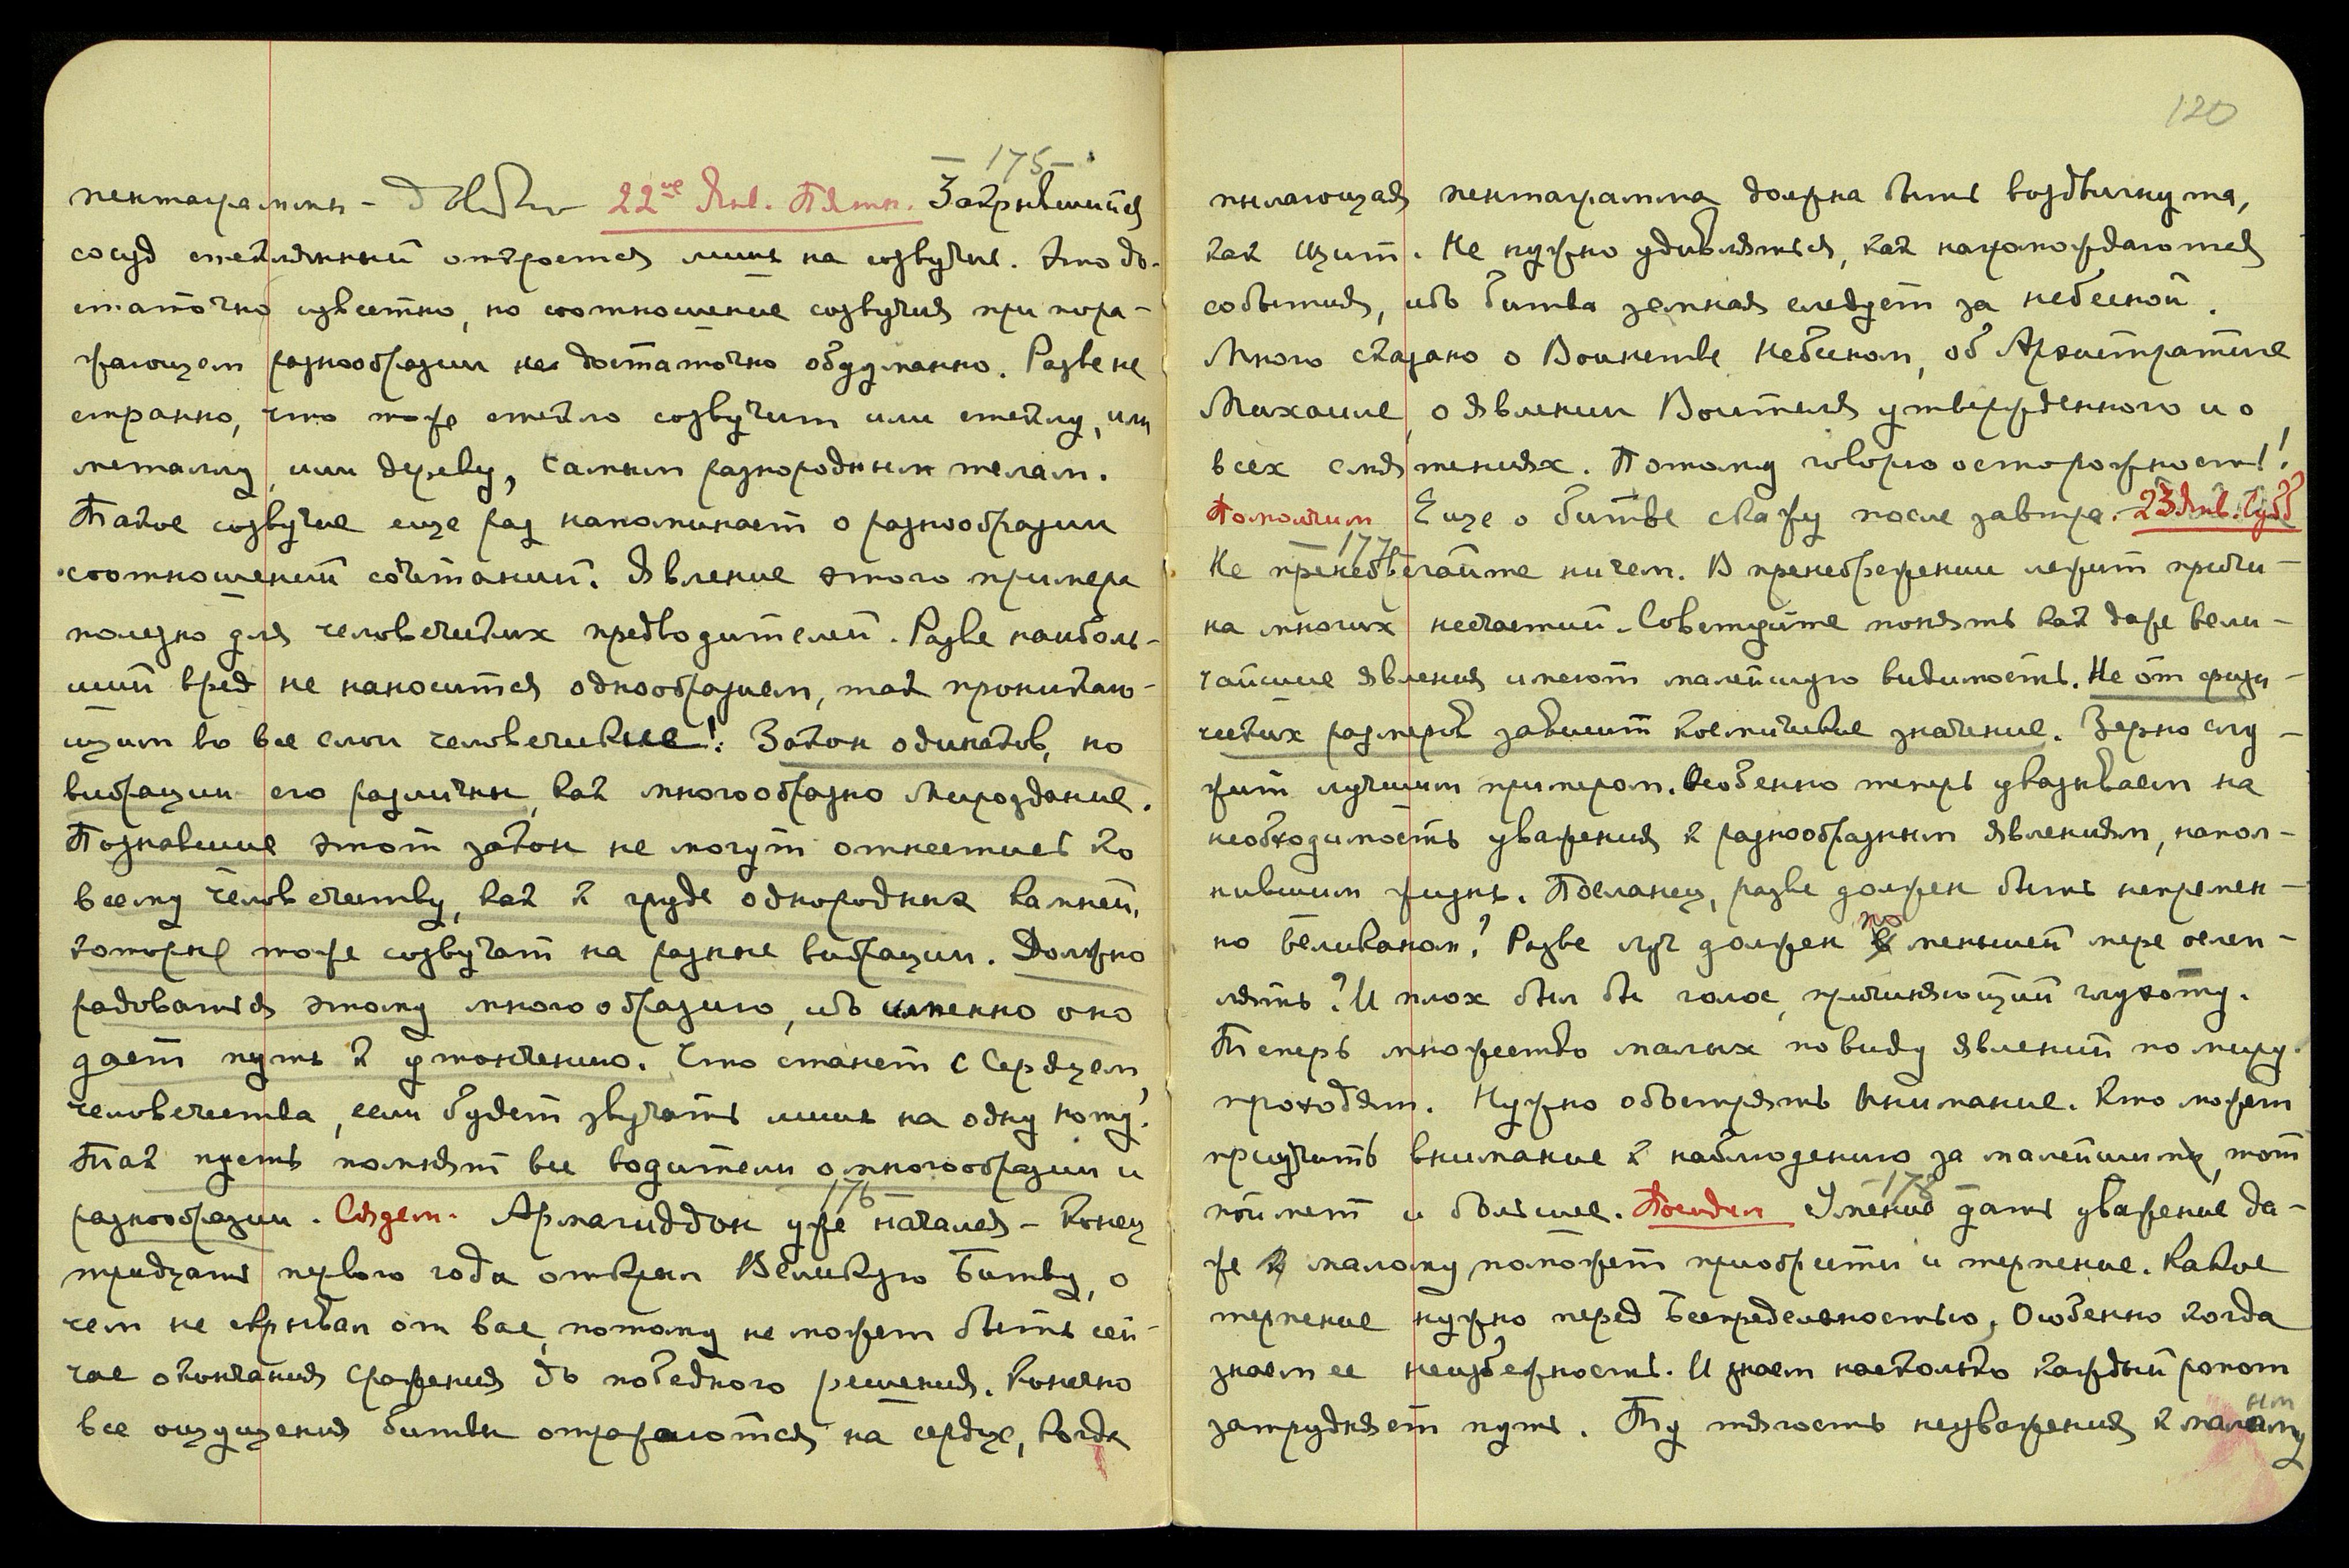 120
– 175 –
пентаграммы – Довольно 22ое Янв. Пятн. Закрывшийся
сосуд стеклянный откроется лишь на созвучье. Это до-
статочно известно, но соотношение созвучия при пора-
жающем разнообразии не достаточно обдуманно. Разве не
странно, что тоже стекло созвучит или стеклу, или
металлу, или дереву, самым разнородным телам.
Такое созвучие еще раз напоминает о разнообразии
соотношений сочетаний. Явление этого примера
полезно для человеческих предводителей. Разве наиболь-
ший вред не наносится однообразием, так проникаю-
щим во все слои человеческие! Закон одинаков, но
вибрации его различны, как многообразно Мироздание.
Познавшие этот закон не могут отнестись ко
всему человечеству, как к груде однородных камней,
которые тоже созвучат на разные вибрации. Должно
радоваться этому многообразию, ибо именно оно
дает путь к утончению. Что станет с Сердцем
человечества, если будет звучать лишь на одну ноту?
Так пусть помнят все водители о многообразии и
176
разнообразии. Сядем. Армагиддон уже начался – конец
тридцать первого года открыл Великую Битву, о
чем не скрывал от вас, потому не может быть сей-
час окончания Сражения до победного решения. Конечно
все ощущения битвы отражаются на сердце, когда
пылающая пентаграмма должна быть воздвигнута,
как щит. Не нужно удивляться, как нагромождаются
события, ибо битва земная следует за небесной.
Много сказано о Воинстве Небесном, об Архистратиге
Михаиле, о явлении Воителя утвержденного и о
всех смятениях. Потому говорю осторожность!
Помолчим Еще о битве скажу после завтра. 23 Янв. Субб
– 177 –
Не пренебрегайте ничем. В пренебрежении лежит причи-
на многих несчастий. Советуйте понять как даже вели-
чайшие явления имеют малейшую видимость. Не от физи-
ческих размеров зависит космическое значение. Зерно слу-
жит лучшим примером. Особенно теперь указываем на
необходимость уважения к разнообразным явлениям, напол-
нившим жизнь. Посланец, разве должен быть непремен-
но великаном? Разве луч должен по меньшей мере ослеп-
лять? И плох был бы голос, причиняющий глухоту.
Теперь множество малых по виду явлений по миру
проходят. Нужно обострять внимание. Кто может
приучить внимание к наблюдению за малейшим, тот
– 178 –
поймет и большее. Посидим Умение дать уважение да-
же к малому поможет приобрести и терпение. Какое
терпение нужно перед Беспредельностью, Особенно когда
знаем ее неизбежность. И знаем насколько каждый ропот
затрудняет путь. Ту тягость неуважения к малому